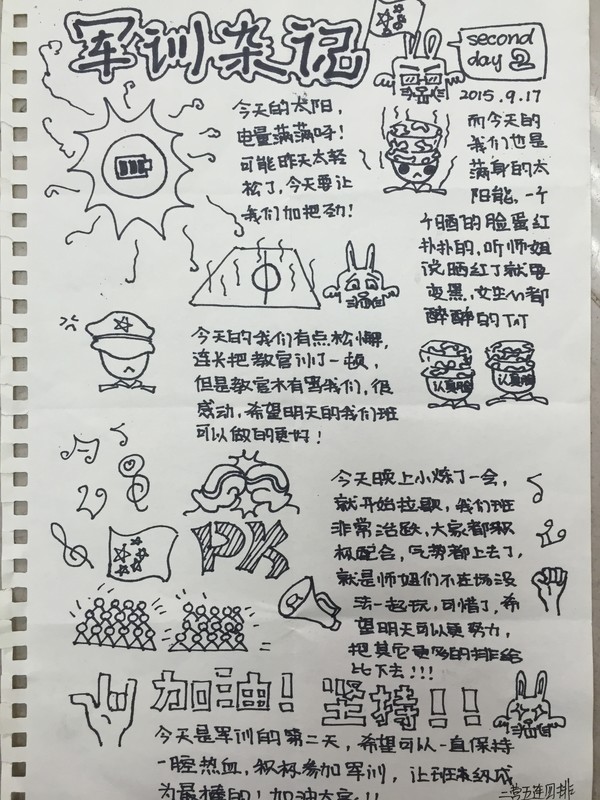 军训杂记
second
day
2015.9.17
今天的太阳，
电量满满呀！
可能昨天太轻
松了，今天要让
我们加把劲！
而今天的
我们也是
满身的太
阳能，一个
个晒的脸蛋红
扑扑的，听师姐
说晒红了就要
变黑，女生们都
醉醉的TnT
今天的我们有点松懈，
连长把教官训了一顿，
但是教官木有骂我们，很
感动，希望明天的我们班
可以做的更好！
认真脸
认真脸
今天晚上小炼了一会，
就开始拉歌，我们班
非常活跃，大家都积
极配合，气势都上去了，
就是师姐们不在场没
法一起玩，可惜了，希
望明天可以更努力，
把其它更多的排给
比下去！！！
PK
加油！坚持！！
今天是军训的第二天，希望可以一直保持
一腔热血，积极参加军训，让班级成
为最棒的！加油大家！！
二营五连四排